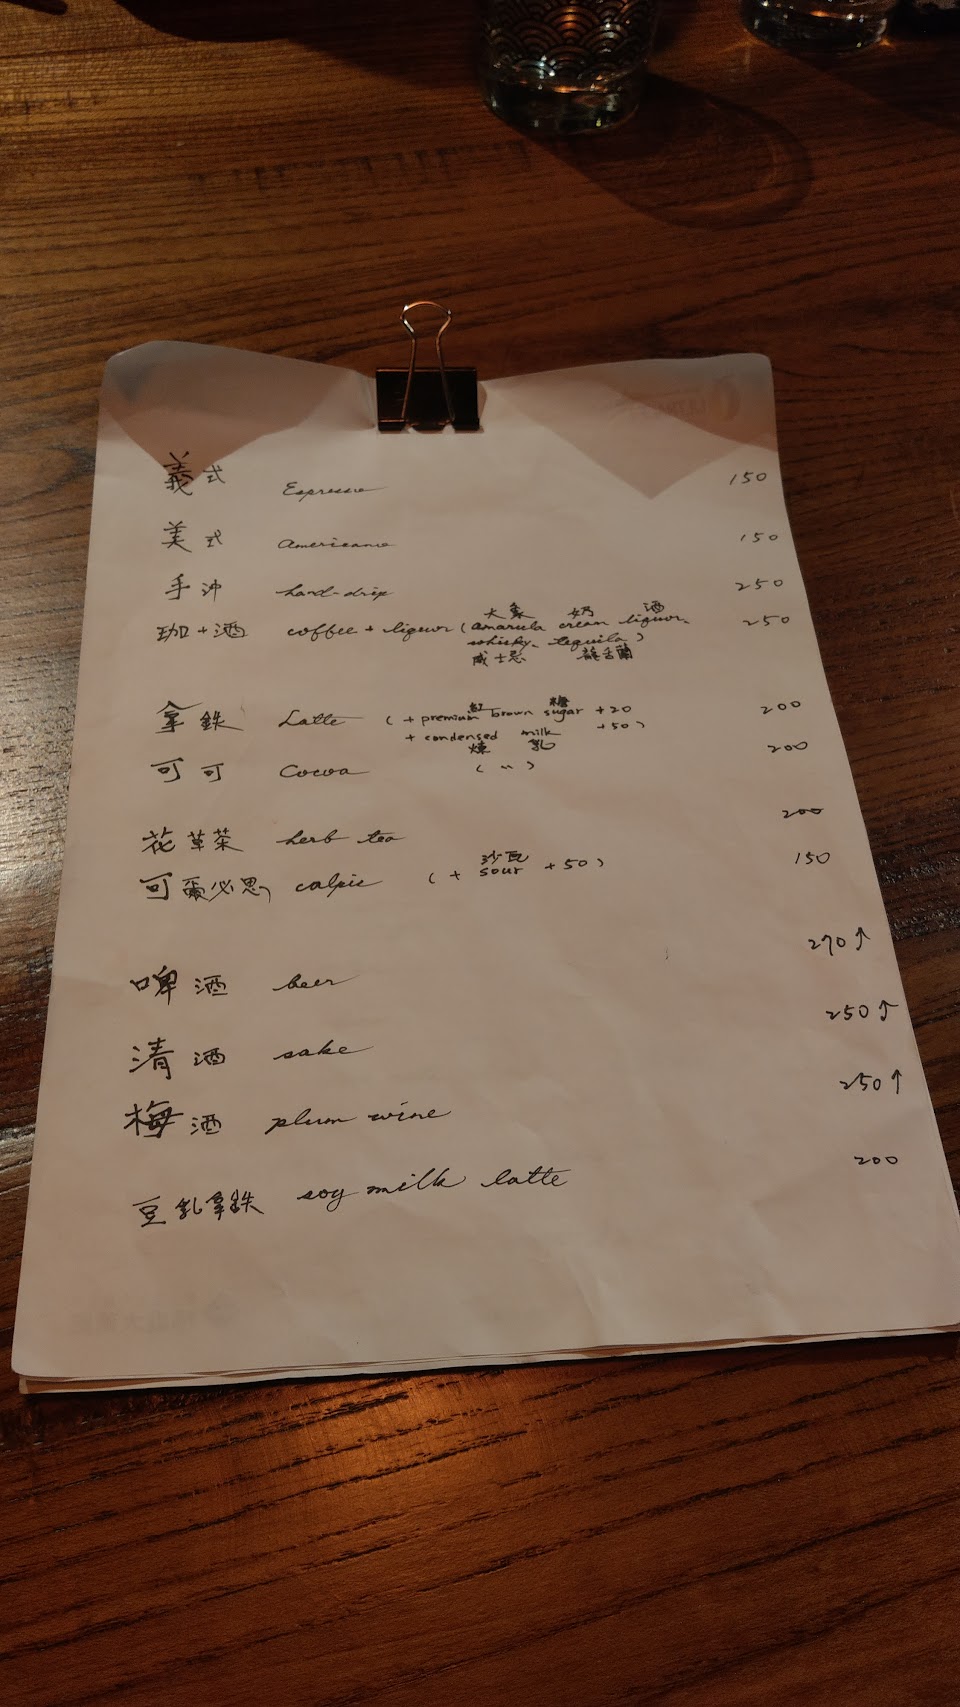 義式 Espresso 150
美式 Americano 150
手沖 hand-drip 250
大象 奶 酒
珈+酒 coffee + liquor (amarula cream liquor, 250
whisky, tequila)
威士忌 龍舌蘭
紅 糖
拿鉄 Latte (+ premium brown sugar +20 200
+ condensed milk +50)
煉 乳
可可 Cocoa ( " ) 200
花草茶 herb tea 200
沙瓦
可爾必思 calpis (+ sour +50) 150
啤酒 beer 270↑
清酒 sake 250↑
梅酒 plum wine 250↑
豆乳拿鉄 soy milk latte 200